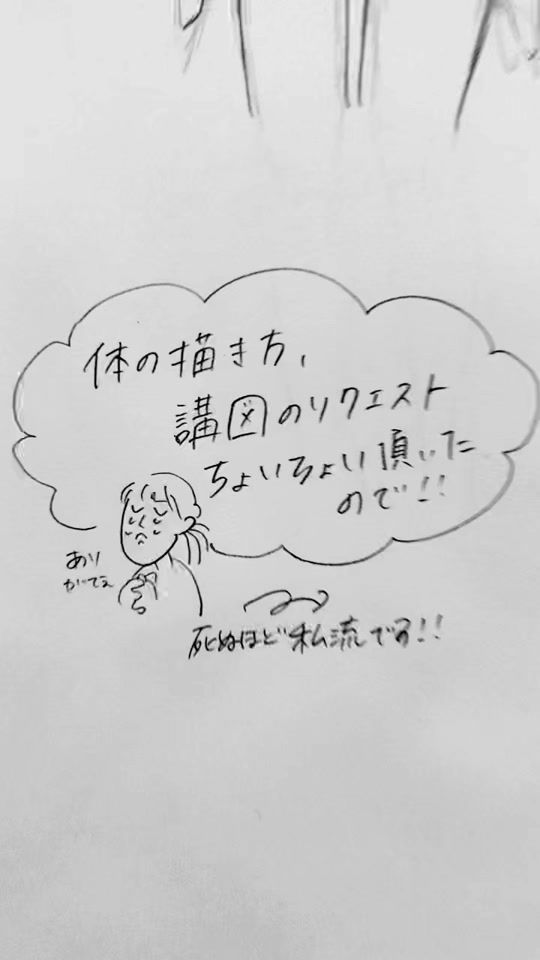 体の描き方、
講図のリクエスト
ちょいちょい頂いた
ので!!
あり
がてぇ
死ぬほど私流です!!